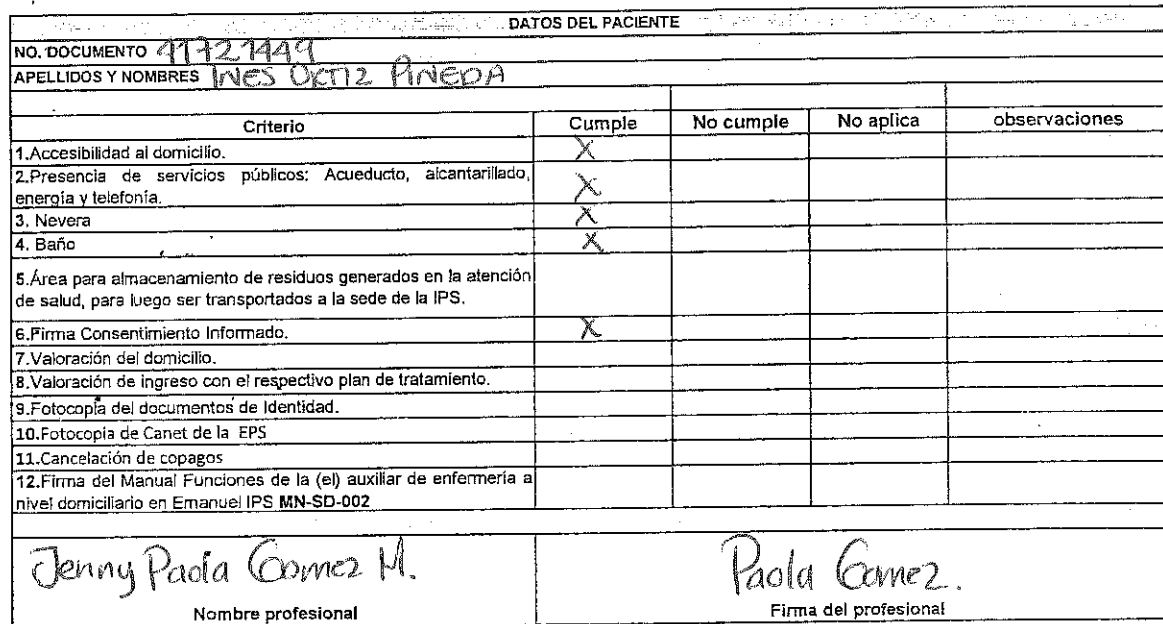 DATOS DEL PACIENTE
NO. DOCUMENTO 41721449
APELLIDOS Y NOMBRES INES ORTIZ PINEDA
Criterio Cumple No cumple No aplica observaciones
1.Accesibilidad al domicilio. X
2.Presencia de servicios públicos: Acueducto, alcantarillado,
energía y telefonía. X
3. Nevera X
4. Baño X
5.Área para almacenamiento de residuos generados en la atención
de salud, para luego ser transportados a la sede de la IPS.
6.Firma Consentimiento Informado. X
7.Valoración del domicilio.
8.Valoración de ingreso con el respectivo plan de tratamiento.
9.Fotocopia del documentos de Identidad.
10.Fotocopia de Canet de la EPS
11.Cancelación de copagos
12.Firma del Manual Funciones de la (el) auxiliar de enfermería a
nivel domiciliario en Emanuel IPS MN-SD-002
Jenny Paola Gomez M. Paola Gomez.
Nombre profesional Firma del profesional